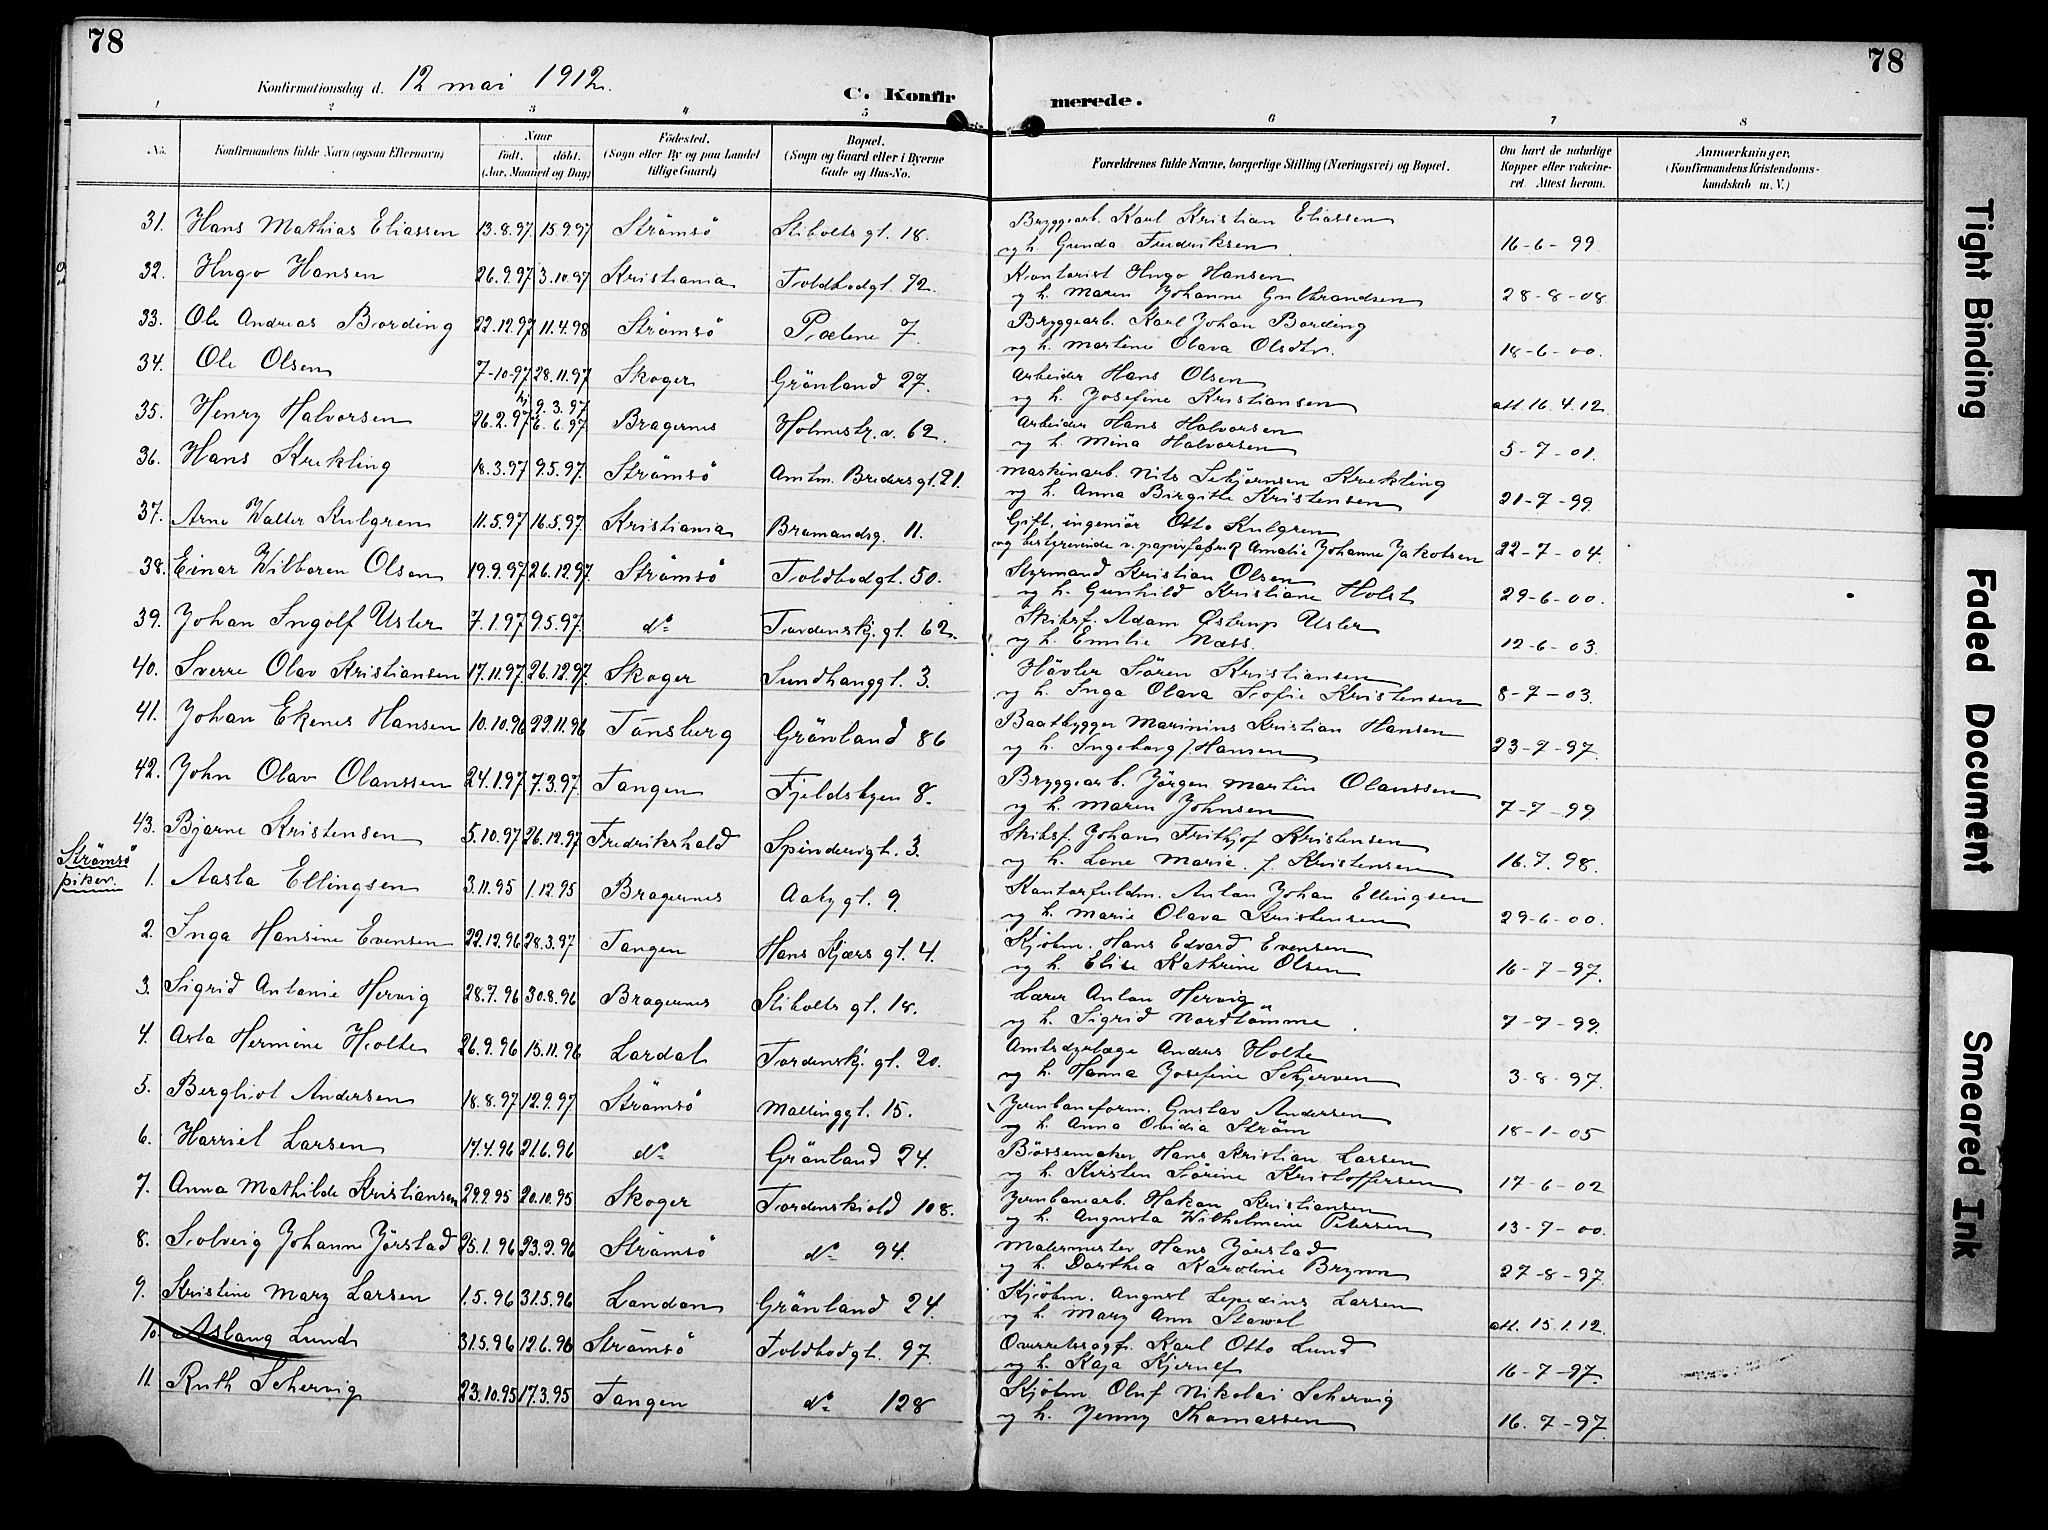 78
78
Konfirmationsdag d. 12 mai 1912.
C. Konfirmerede.
1 2 3 4 5 6 7 8
No.
Konfirmandens fulde Navn (ogsaa Efternavn)
Naar
födt. döbt.
(Aar, Maaned og Dag)
Födested.
(Sogn eller By og paa Landet
tillige Gaard)
Bopæl.
(Sogn og Gaard eller i Byerne
Gade og Hus-No.
Forældrenes fulde Navne, borgerlige Stilling (Næringsvei) og Bopæl.
Om havt de naturlige
Kopper eller vakcine-
ret. Attest herom.
Anmærkninger.
(Konfirmandens Kristendoms-
kundskab m. V.)
31. Hans Mathias Eliassen 13.8.97 15.9.97 Strömsö Stibolts gt. 18. Bryggearb. Karl Kristian Eliassen
og h. Gunda Fredriksen 16-6-99.
32. Hugo Hansen 26.9.97 3.10.97 Kristiania Toldbodgt. 72. Kontorist Hugo Hansen
og h. Maren Johanne Gulbrandsen 28-8-08
33. Ole Andreas Bording 22.12.97 11.4.98 Strömsö Pælene 7. Bryggearb. Karl Johan Bording
og h. Martine Olava Olsdtr. 18-6-00.
34. Ole Olsen 7-10-97 28.11.97 Skoger Grönland 27. Arbeider Hans Olsen
og h. Josefine Kristiansen att. 16.4.12.
35. Henry Halvorsen 26.2.97 hj. 9.3.97 6.6.97 Bragernes Holmestr.v. 62. Arbeider Hans Halvorsen
og h. Mina Halvorsen 5-7-01.
36. Hans Krekling 18.3.97 9.5.97. Strömsö Amtm. Breders gt. 21. Maskinarb. Nils Krekling
og h. Anna Birgitte Kristensen 21-7-99
37. Arne Walter Kulgren 11.5.97 16.5.97 Kristiania 11. Gift, ingeniör Otto Kulgren
og bestyrerinde v. papirfabrik Amalie Johanne Jakobsen 22-7-04.
38. Einar Wilboren Olsen 19.9.97 26.12.97 Strömsö Toldbodgt. 50. Styrmand Kristian Olsen
og h. Gunhild Kristiane Holst 29-6-00.
39. Johan Ingolf Usler 7.1.97 9.5.97. do Tordenskj. gt. 62. Skibsf. Adam Østrup Usler
og h. Emilie Næss. 12-6-03.
40. Sverre Olav Kristiansen 17.11.97 26.12.97 Skoger Sundhauggt. 3. Hövler Sören Kristiansen
og h. Inga Olava Sofie Kristensen 8-7-03.
41. Johan Ekenes Hansen 10.10.96 22.11.96 Tönsberg Grönland 86 Baatbygger Marinius Kristian Hansen
og h. Ingeborg f. Hansen 23-9-97.
42. John Olav Olaussen 24.1.97 7.3.97. Tangen Fjeldsbyen 8. Bryggearb. Jörgen Martin Olaussen
og h. Maren Johnsen 7-7-99
43. Bjarne Kristensen 5.10.97 26.12.97 Fredrikshald Spinderigt. 3. Skibsf. Johan Frithjof Kristensen
og h. Lone Marie f. Kristensen 16.7.98.
Strömsö
piker.
1. Aasta Ellingsen 3.11.95 1.12.95 Bragernes Aaby gt. 9. Kontorfuldm. Anton Johan Ellingsen
og h. Marie Olava Kristensen 29-6-00.
2. Inga Hansine Evensen 22.12.96 28.3.97 Tangen Hans Kjærs gt. 4. Kjöbm. Hans Edvard Evensen
og h. Elise Kathrine Olsen 16-7-97.
3. Sigrid Antonie Hervig 28.7.96 30.8.96 Bragernes Stibolts gt. 18. Lærer Anton Hervig
og h. Sigrid Nordtömme. 7-7-99.
4. Asta Hermine Holte 26.9.96 15.11.96 Lardal Tordenskj. gt. 20. Amtsdyrlæge Anders Holte
og h. Hanna Josefine Schjerven 3-8-97.
5. Bergliot Andersen 18.8.97 12.9.97 Strömsö Mallinggt. 15. Jernbaneform. Gustav Andersen
og h. Anna Obidia Ström 18-1-05
6. Harriet Larsen 17.4.96 21.6.96 do Grönland 24. Bössemaker Hans Kristian Larsen
og h. Kirsten Sörine Kristoffersen 17-6-02
7. Anna Mathilde Kristiansen 29.9.95 20.10.95 Skoger Tordenskiold 108. Jernbanearb. Hakon Kristiansen
og h. Augusta Wilhelmine Petersen 13-7-00.
8. Solveig Johanne Jörstad 25.1.96 23.2.96 Strömsö do 94. Malermester Hans Jörstad
og h. Dorthea Karoline Brynn 27-8-97.
9. Kristine Mary Larsen 1.5.96 31.5.96 London Grönland 24. Kjöbm. August Larsen
og h. Mary Ann Stowel att. 15.1.12.
10. Aslaug Lund 31.5.96 12.6.96 Strömsö Toldbodgt. 97. Overretssagf. Karl Otto Lund
og h. Kaja Kjernef 16-7-97.
11. Ruth Schervig 23.10.95 17.3.95 Tangen do 128 Kjöbm. Oluf Nikolai Schervig
og h. Jenny Thomassen 16.7-97.
Tight Binding
Faded Document
Smeared Ink